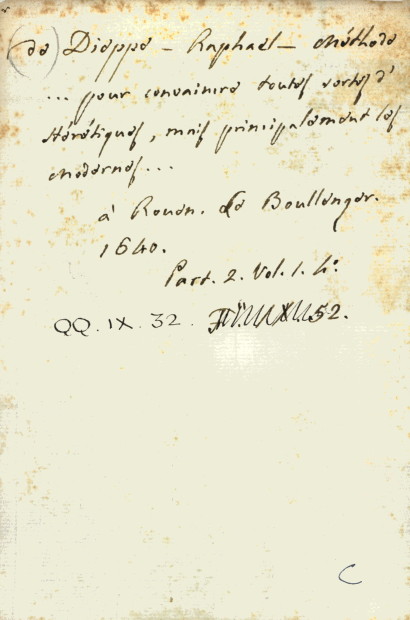 (de) Dieppe - Raphael - Méthode
... pour convaincre toutes sortes d'
Hérétiques, mais principalement les
Modernes...
à Rouen. Le Boullenger.
1640.
Part. 2. Vol. 1. 4°.
QQ. IX. 32. 52.
C